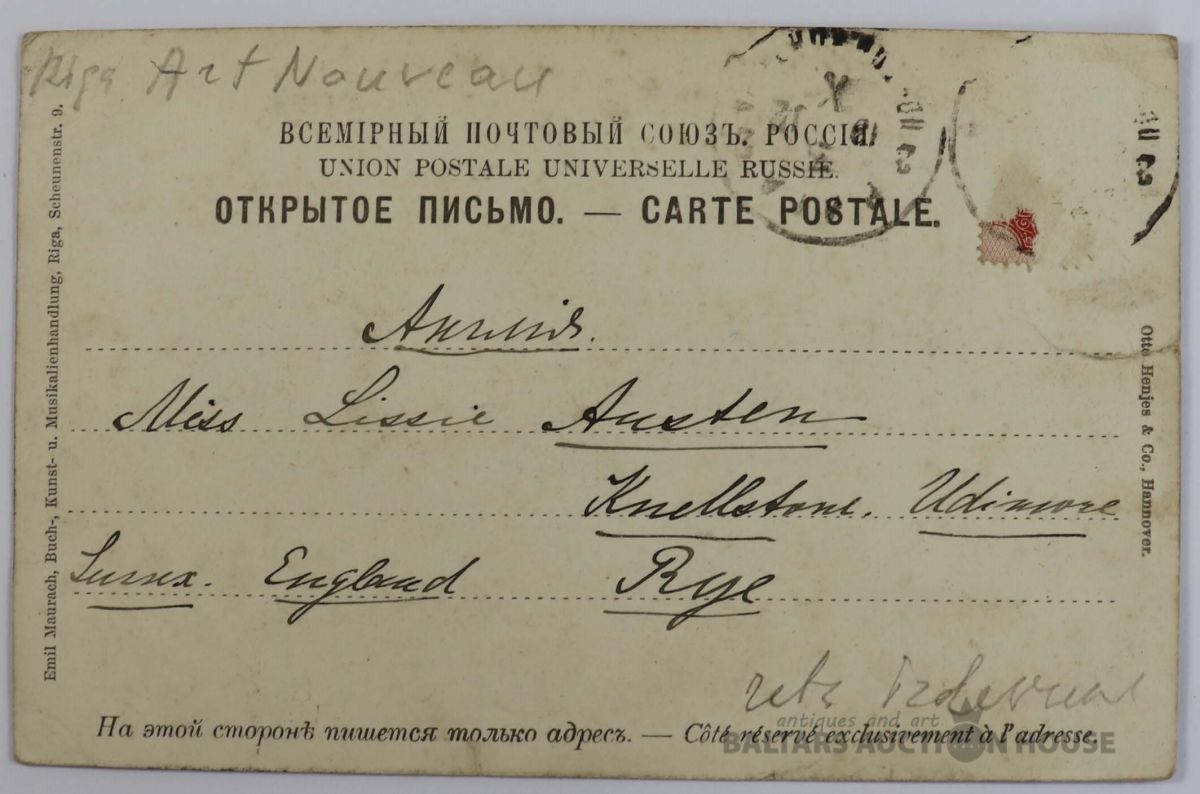 Riga Art Nouveau
ВСЕМІРНЫЙ ПОЧТОВЫЙ СОЮЗЪ. РОССІЯ.
UNION POSTALE UNIVERSELLE RUSSIE.
ОТКРЫТОЕ ПИСЬМО. — CARTE POSTALE.
Miss Lissie Austen
Knellstone. Udimore
Sussex. England Rye
На этой сторонѣ пишется только адресъ. — Côté réservé exclusivement à l'adresse.
Emil Maurach, Buch-, Kunst- u. Musikalienhandlung, Riga, Scheunenstr. 9.
Otto Henjes & Co., Hannover.
antiques and art
BALTARS AUCTION HOUSE